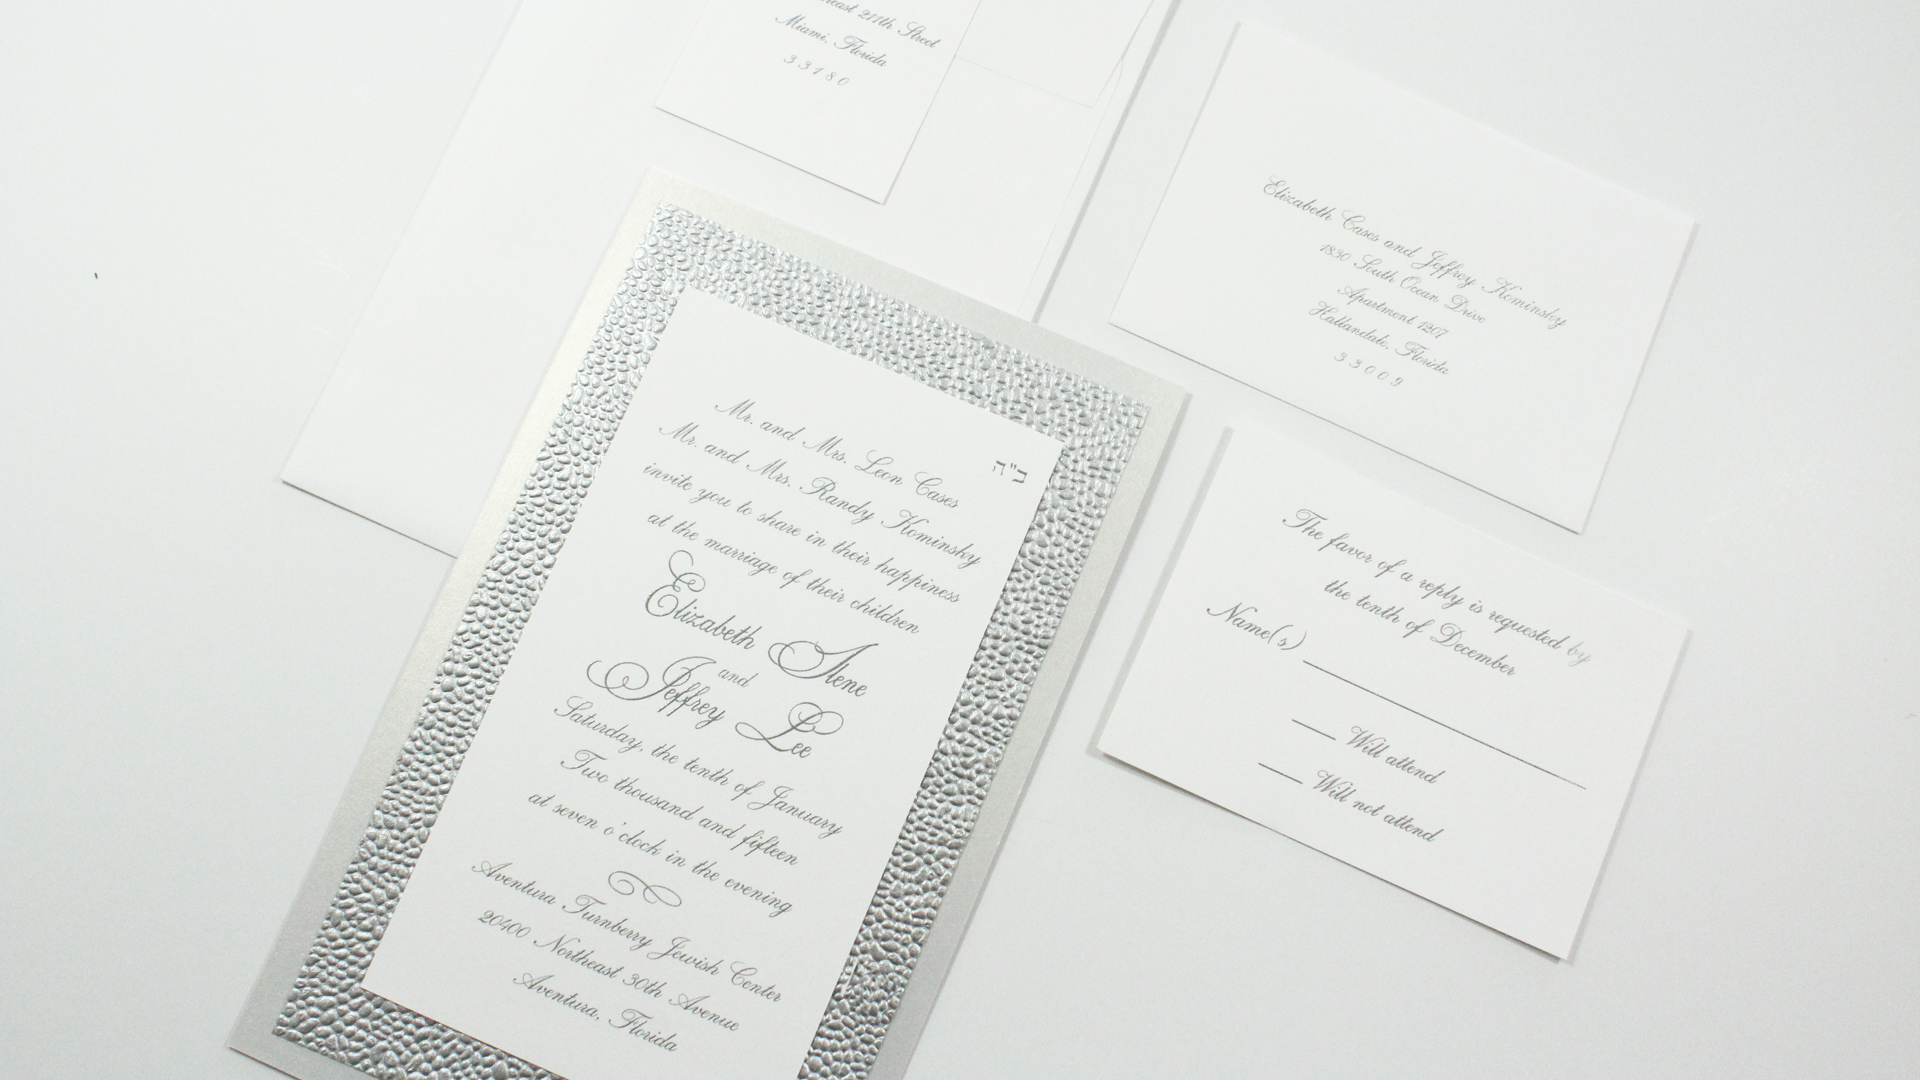 Northeast 211th Street
Miami, Florida
33180
Elizabeth Cases and Jeffrey Kominsky
1830 South Ocean Drive
Apartment 1207
Hallandale, Florida
33009
ב"ה
Mr. and Mrs. Leon Cases
Mr. and Mrs. Randy Kominsky
invite you to share in their happiness
at the marriage of their children
Elizabeth Ilene
and
Jeffrey Lee
Saturday, the tenth of January
Two thousand and fifteen
at seven o'clock in the evening
Aventura Turnberry Jewish Center
20400 Northeast 30th Avenue
Aventura, Florida
The favor of a reply is requested by
the tenth of December
Name(s)
Will attend
Will not attend